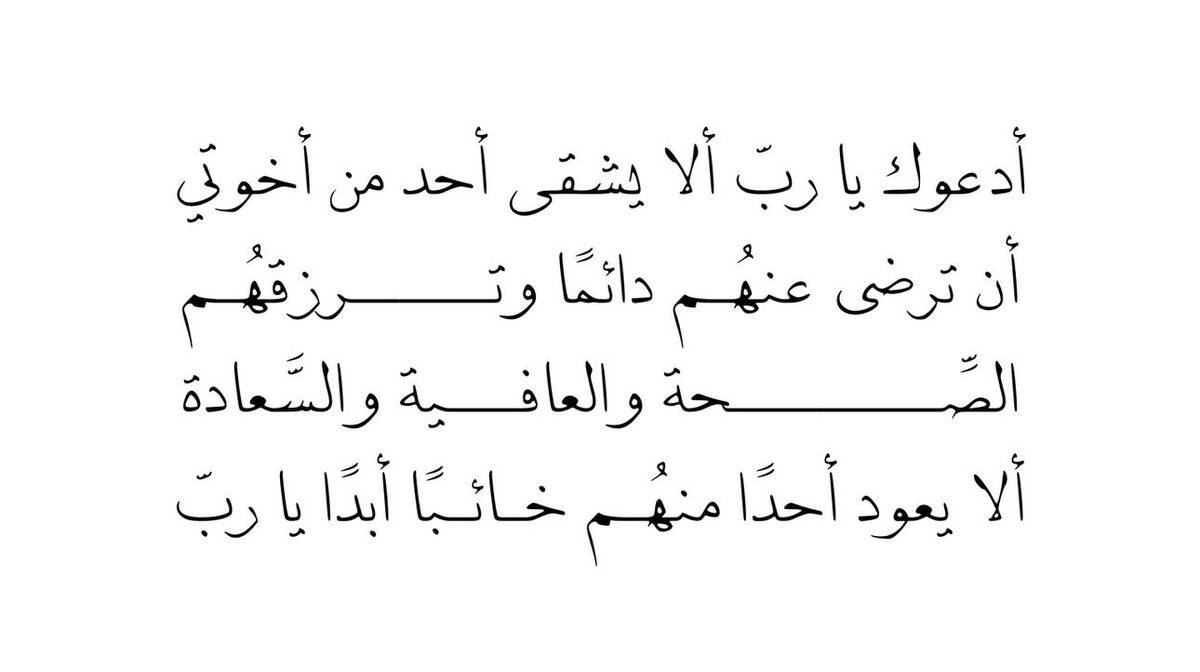 أدعوك يا ربّ ألا يشقى أحد من أخوتي
أن ترضى عنهُم دائمًا وترزقهُم
الصِّحة والعافية والسَّعادة
ألا يعود أحدًا منهُم خائبًا أبدًا يا ربّ